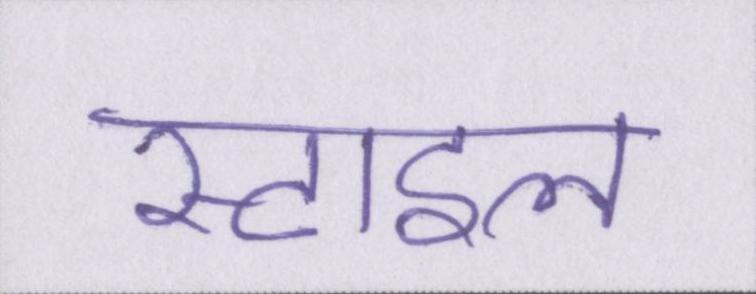 स्टाइल